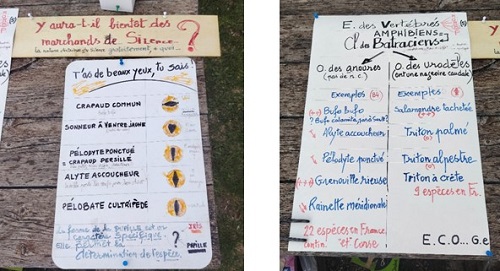 Y aura-t-il bientôt des
marchands de Silence ?
T'as de beaux yeux, tu sais !
CRAPAUD COMMUN
SONNEUR À VENTRE JAUNE
PÉLODYTE PONCTUÉ
= CRAPAUD PERSILLÉ
ALYTE ACCOUCHEUR
PÉLOBATE CULTRIPÈDE
La forme de la pupille est un
caractère spécifique.
Elle permet la
détermination de l'espèce.
?
PUPILLE
E. des Vertébrés
AMPHIBIENS
Cl. des Batraciens
?
O. des anoures
(pas de n.c.)
Exemples
Bufo Bufo
? Bufo calamita
Alyte accoucheur
Pélodyte ponctué
Grenouille rieuse
Rainette méridionale
22 espèces en France
Contin. et Corse
O. des urodèles
(ont une nageoire caudale)
Exemples
Salamandre tachetée
Triton palmé
Triton alpestre
Triton à crête
9 espèces en Fr.
E.C.O...G.e